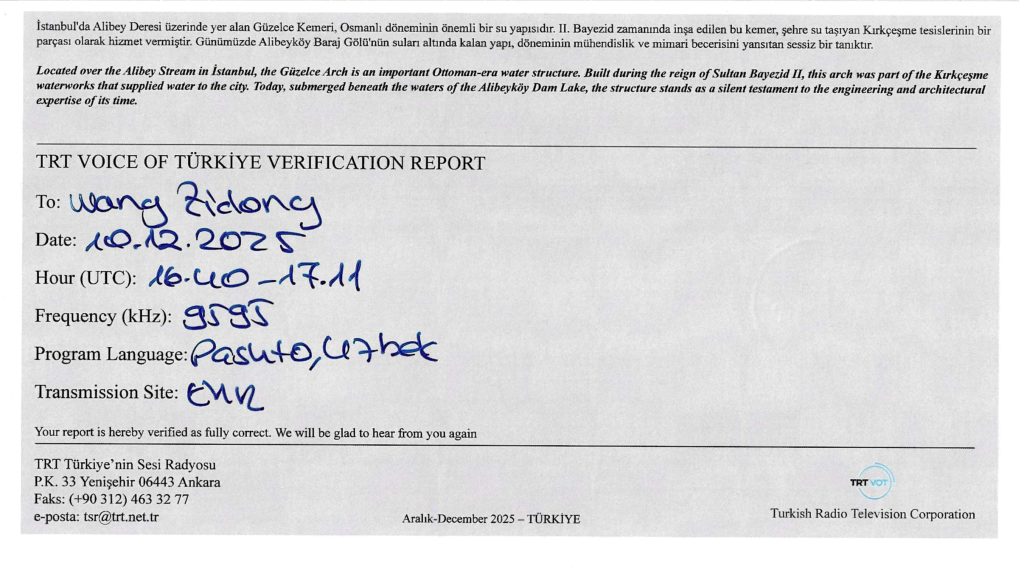 İstanbul'da Alibey Deresi üzerinde yer alan Güzelce Kemeri, Osmanlı döneminin önemli bir su yapısıdır. II. Bayezid zamanında inşa edilen bu kemer, şehre su taşıyan Kırkçeşme tesislerinin bir
parçası olarak hizmet vermiştir. Günümüzde Alibeyköy Baraj Gölü'nün suları altında kalan yapı, döneminin mühendislik ve mimari becerisini yansıtan sessiz bir tanıktır.
Located over the Alibey Stream in İstanbul, the Güzelce Arch is an important Ottoman-era water structure. Built during the reign of Sultan Bayezid II, this arch was part of the Kırkçeşme
waterworks that supplied water to the city. Today, submerged beneath the waters of the Alibeyköy Dam Lake, the structure stands as a silent testament to the engineering and architectural
expertise of its time.
TRT VOICE OF TÜRKİYE VERIFICATION REPORT
To: Wang Zidong
Date: 10.12.2025
Hour (UTC): 16.40-17.11
Frequency (kHz): 9595
Program Language: Pashto, Uzbek
Transmission Site: EMR
Your report is hereby verified as fully correct. We will be glad to hear from you again
TRT Türkiye'nin Sesi Radyosu
P.K. 33 Yenişehir 06443 Ankara
Faks: (+90 312) 463 32 77
e-posta: tsr@trt.net.tr
Aralık-December 2025 – TÜRKİYE
TRT VOT
Turkish Radio Television Corporation